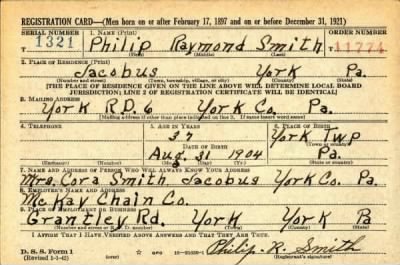 REGISTRATION CARD—(Men born on or after February 17, 1897 and on or before December 31, 1921)
SERIAL NUMBER 1. NAME (Print) ORDER NUMBER
1321 Philip Raymond Smith 11774
(First) (Middle) (Last)
2. PLACE OF RESIDENCE (Print)
Jacobus York Pa.
(Number and street) (Town, township, village, or city) (County) (State)
[THE PLACE OF RESIDENCE GIVEN ON THE LINE ABOVE WILL DETERMINE LOCAL BOARD
JURISDICTION; LINE 2 OF REGISTRATION CERTIFICATE WILL BE IDENTICAL]
3. MAILING ADDRESS
York R.D. 6 York Co. Pa.
[Mailing address if other than place indicated on line 2. If same insert word same]
4. TELEPHONE 5. AGE IN YEARS 6. PLACE OF BIRTH
37 York Twp
DATE OF BIRTH
Aug. 31 1904 Pa.
7. NAME AND ADDRESS OF PERSON WHO WILL ALWAYS KNOW YOUR ADDRESS
Mrs. Cora Smith Jacobus York Co. Pa.
8. EMPLOYER'S NAME AND ADDRESS
McKay Chain Co.
9. PLACE OF EMPLOYMENT OR BUSINESS
Grantley Rd. York York Pa
(Number and street or R. F. D. number) (Town) (County) (State)
I AFFIRM THAT I HAVE VERIFIED ABOVE ANSWERS AND THAT THEY ARE TRUE.
D. S. S. Form 1
(Revised 1-1-42) (over) Philip. R. Smith
(Registrant's signature)